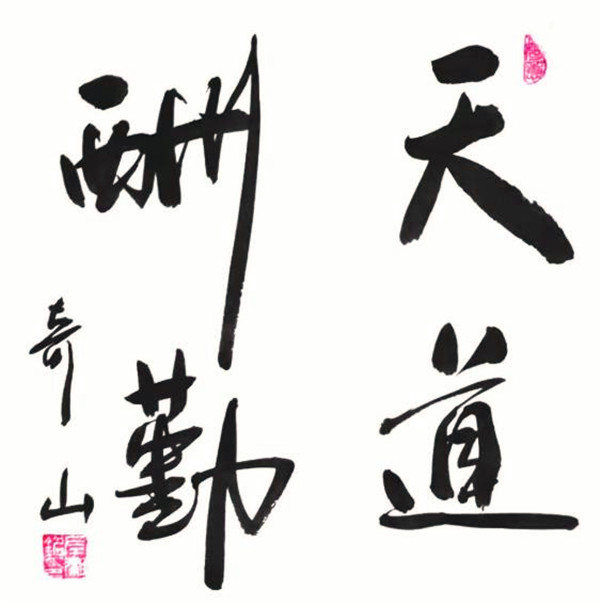 天道
酬勤
奇山